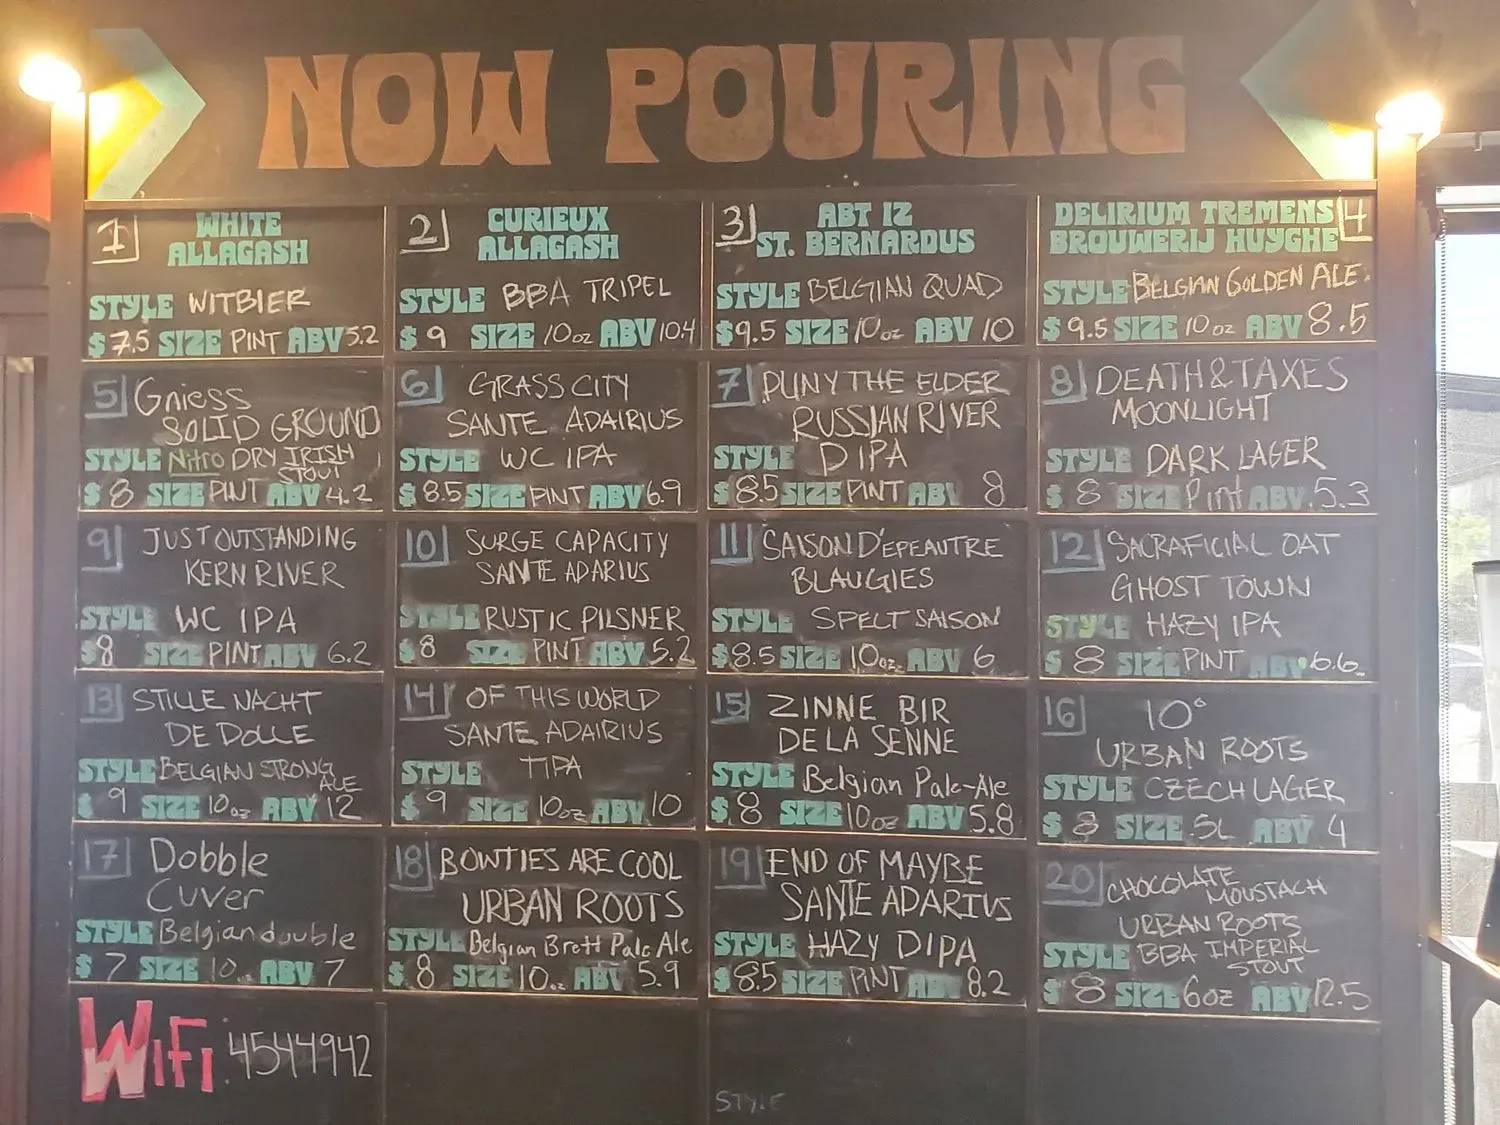 NOW POURING
1 WHITE
ALLAGASH
STYLE WITBIER
$ 7.5 SIZE PINT ABV 5.2
2 CURIEUX
ALLAGASH
STYLE BBA TRIPEL
$ 9 SIZE 10oz ABV 10.4
3 ABT 12
ST. BERNARDUS
STYLE BELGIAN QUAD
$9.5 SIZE 10oz ABV 10
DELIRIUM TREMENS 4
BROUWERIJ HUYGHE
STYLE BELGIAN GOLDEN ALE
$ 9.5 SIZE 10oz ABV 8.5
5 Gniess
SOLID GROUND
STYLE Nitro DRY IRISH
STOUT
$ 8 SIZE PINT ABV 4.2
6 GRASS CITY
SANTE ADAIRIUS
STYLE WC IPA
$8.5 SIZE PINT ABV 6.9
7 PLINY THE ELDER
RUSSIAN RIVER
STYLE DIPA
$8.5 SIZE PINT ABV 8
8 DEATH & TAXES
MOONLIGHT
STYLE DARK LAGER
$ 8 SIZE Pint ABV 5.3
9 JUST OUTSTANDING
KERN RIVER
STYLE WC IPA
$8 SIZE PINT ABV 6.2
10 SURGE CAPACITY
SANTE ADARIUS
STYLE RUSTIC PILSNER
$8 SIZE PINT ABV 5.2
11 SAISON D'EPEAUTRE
BLAUGIES
STYLE SPELT SAISON
$8.5 SIZE 10oz ABV 6
12 SACRAFICIAL OAT
GHOST TOWN
STYLE HAZY IPA
$ 8 SIZE PINT ABV 6.6
13 STILLE NACHT
DE DOLLE
STYLE BELGIAN STRONG
ALE
$ 9 SIZE 10oz ABV 12
14 OF THIS WORLD
SANTE ADAIRIUS
STYLE TIPA
$ 9 SIZE 10oz ABV 10
15 ZINNE BIR
DE LA SENNE
STYLE Belgian Pale-Ale
$ 8 SIZE 10oz ABV 5.8
16 10°
URBAN ROOTS
STYLE CZECH LAGER
$ 8 SIZE .5L ABV 4
17 Dobble
Cuver
STYLE Belgian double
$ 7 SIZE 10oz ABV 7
18 BOWTIES ARE COOL
URBAN ROOTS
STYLE Belgian Brett Pale Ale
$ 8 SIZE 10oz ABV 5.9
19 END OF MAYBE
SANTE ADARIUS
STYLE HAZY DIPA
$8.5 SIZE PINT ABV 8.2
20 CHOCOLATE
MOUSTACH
URBAN ROOTS
STYLE BBA IMPERIAL
STOUT
$ 8 SIZE 6oz ABV 12.5
WiFi 4544942
STYLE